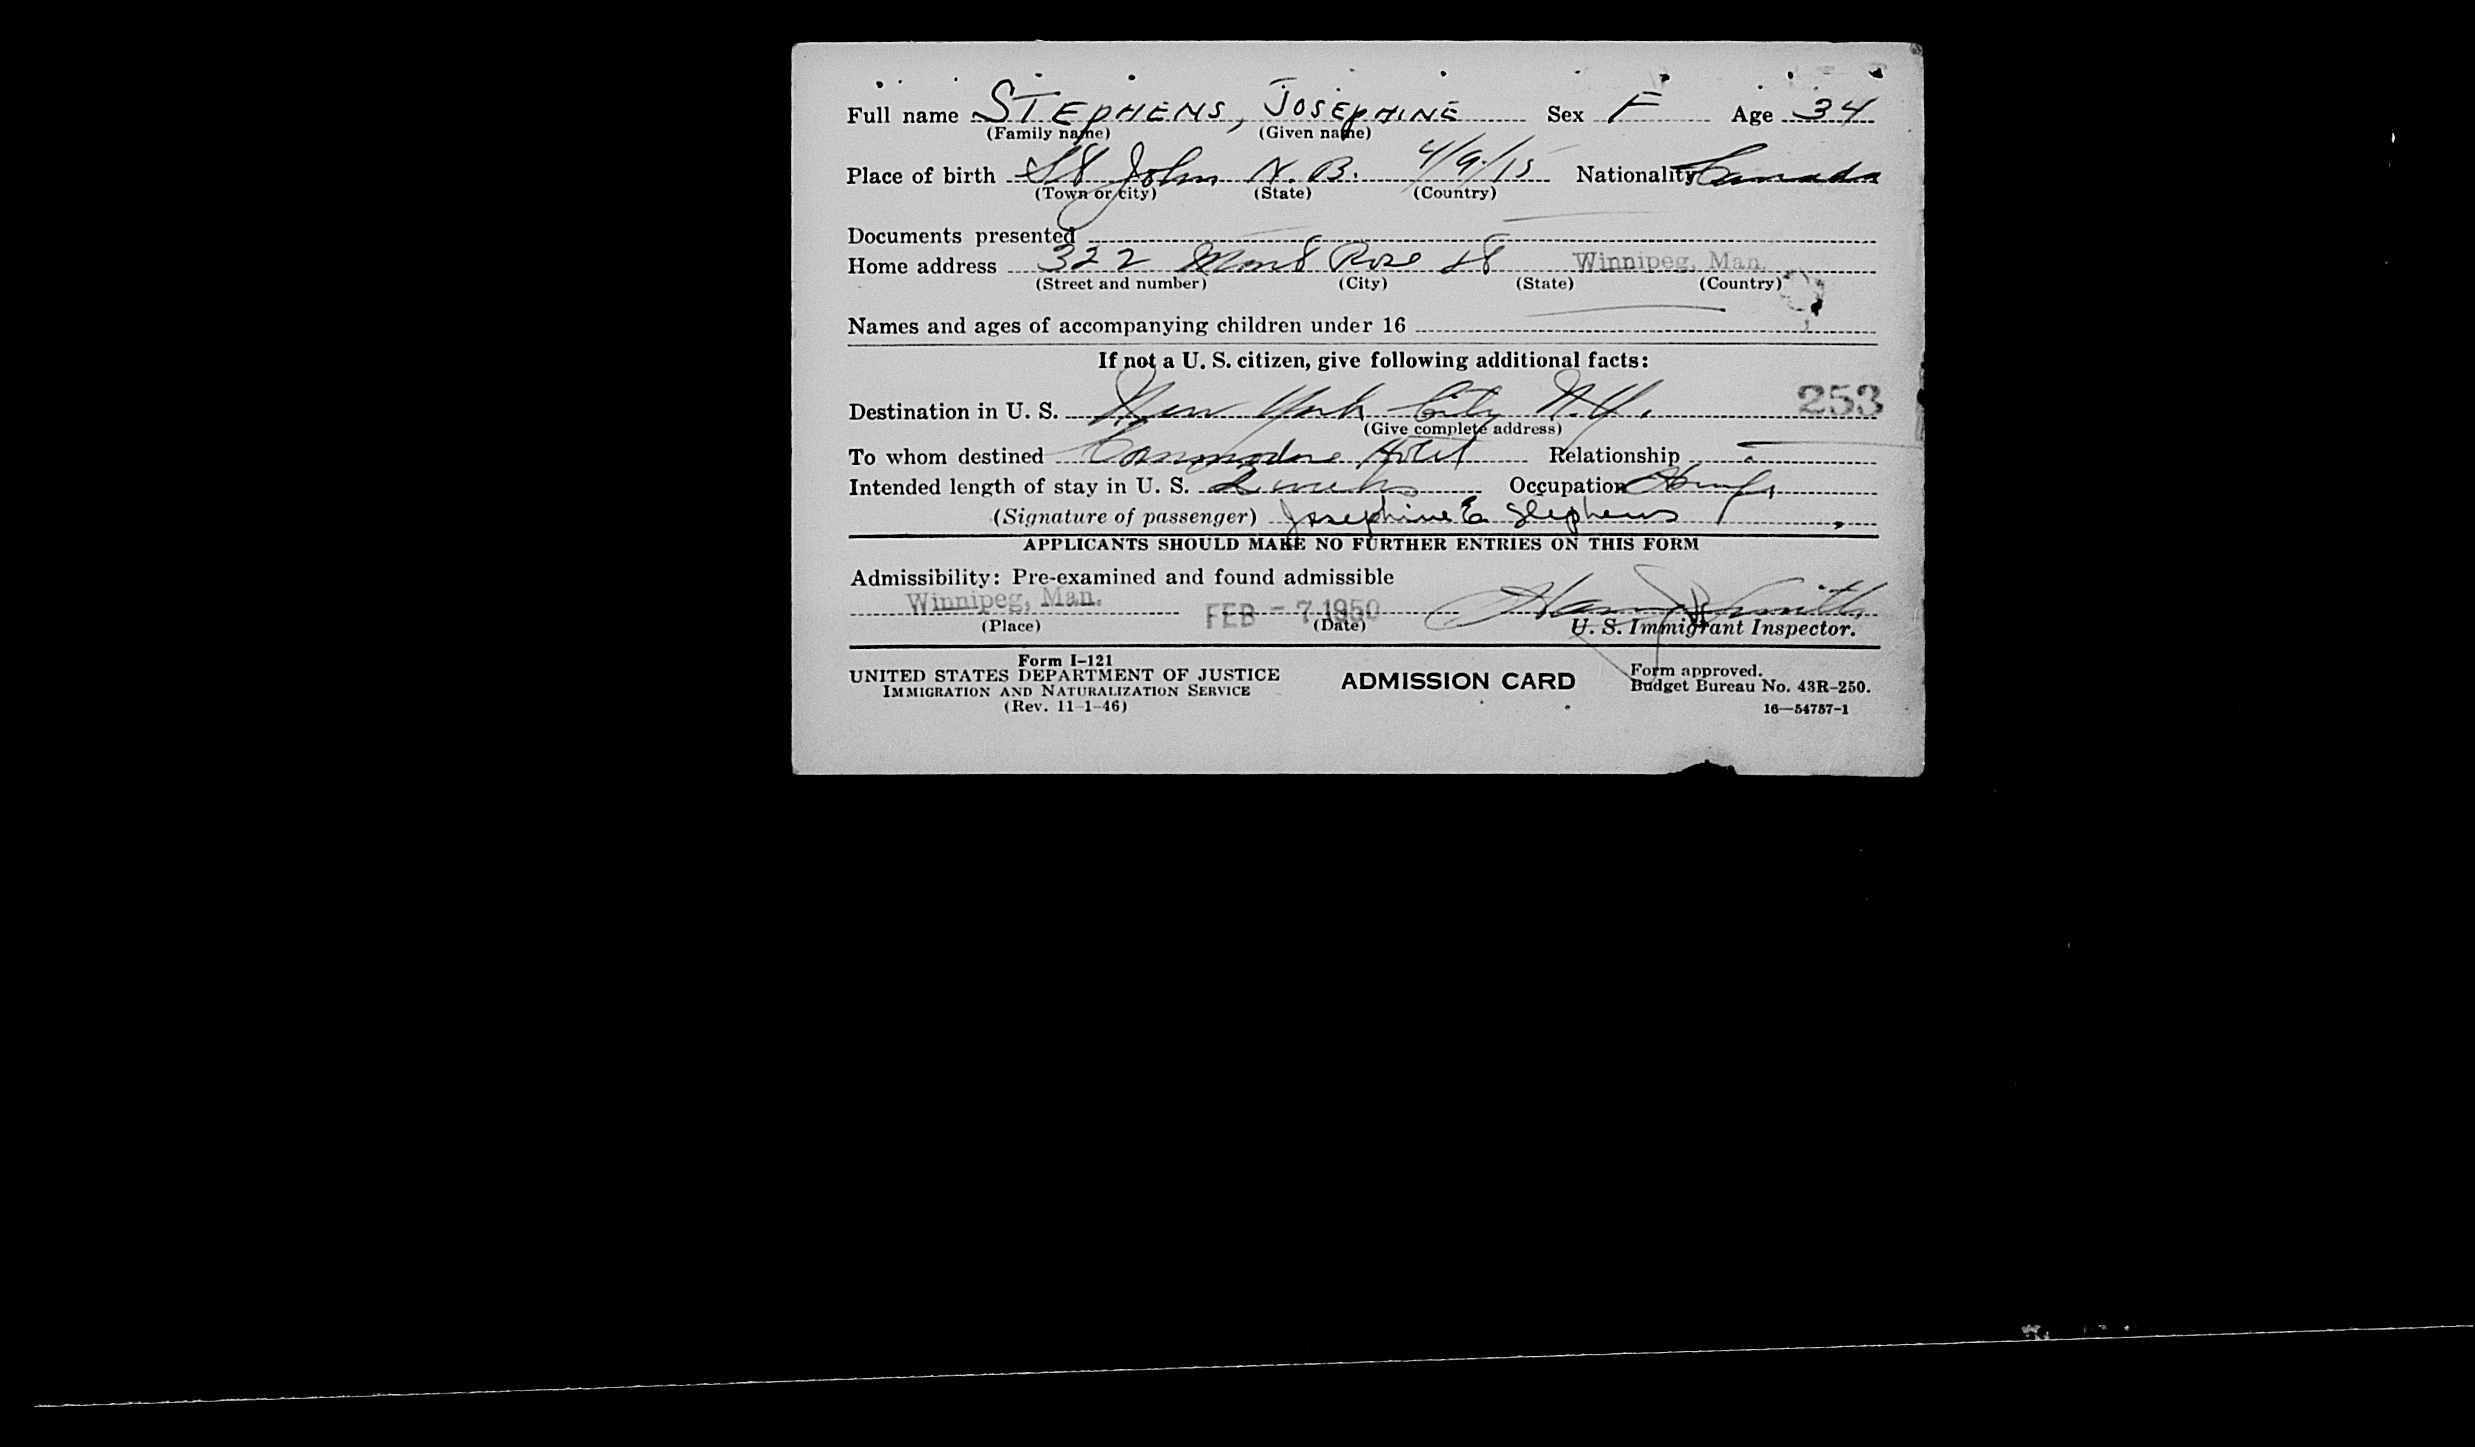 Full name STEPHENS, JOSEPHINE Sex F Age 34
(Family name) (Given name)
Place of birth St John N. B. 4/9/15 Nationality Canada
(Town or city) (State) (Country)
Documents presented
Home address 322 Mont Rose St Winnipeg, Man.
(Street and number) (City) (State) (Country)
Names and ages of accompanying children under 16
If not a U. S. citizen, give following additional facts:
Destination in U. S. New York City N.Y. 253
(Give complete address)
To whom destined Commodore Hotel Relationship
Intended length of stay in U. S. 2 weeks Occupation
(Signature of passenger) Josephine E Stephens
APPLICANTS SHOULD MAKE NO FURTHER ENTRIES ON THIS FORM
Admissibility: Pre-examined and found admissible
Winnipeg, Man. FEB - 7 1950 Smith
(Place) (Date) U. S. Immigrant Inspector.
Form I-121
UNITED STATES DEPARTMENT OF JUSTICE ADMISSION CARD Form approved.
IMMIGRATION AND NATURALIZATION SERVICE Budget Bureau No. 43R-250.
(Rev. 11-1-46) 16—54757-1